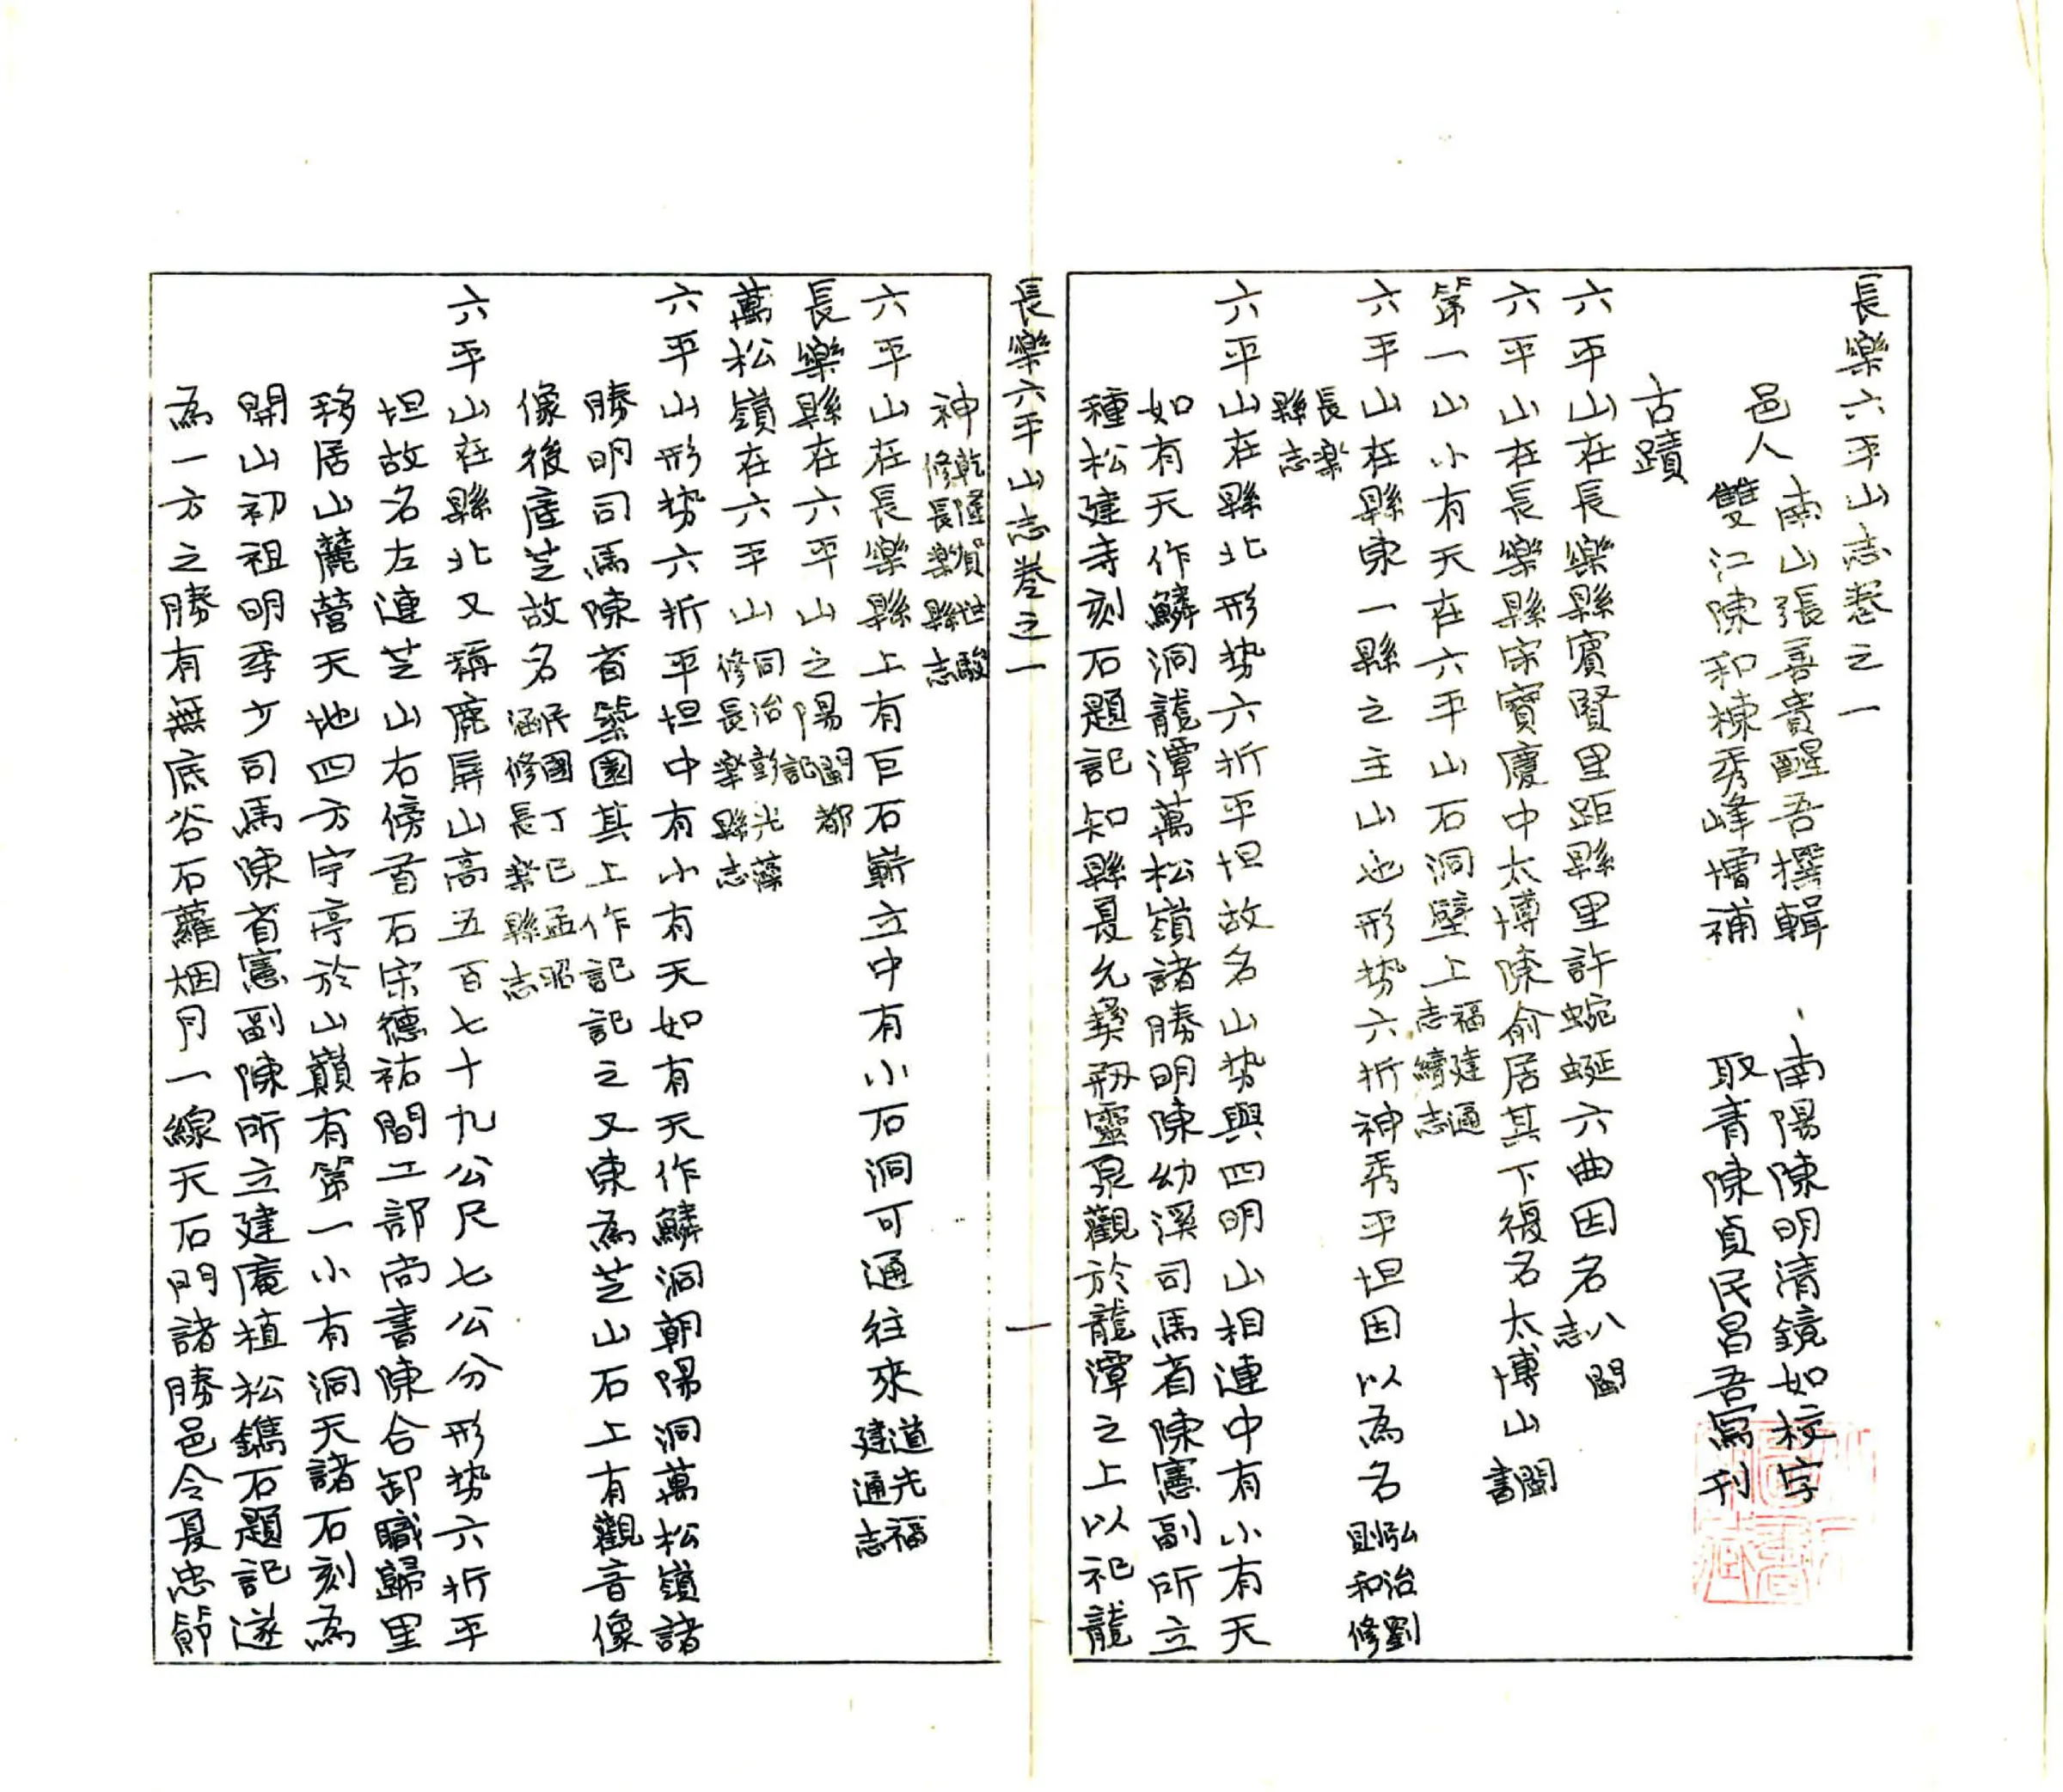 長樂六平山志卷之一
邑人南山張善貴醒吾撰輯 南陽陳明清鏡如校字
雙江陳和棟秀峰增補 取青陳貞民昌吾寫刊
古蹟
六平山在長樂縣賓賢里距縣里許蜿蜒六曲因名八閩志
六平山在長樂縣宋寶慶中太博陳俞居其下復名太博山閩書
第一山小有天在六平山石洞壁上福建通志續志
六平山在縣東一縣之主山也形势六折神秀平坦因以為名弘治劉則和修
長楽縣志
六平山在縣北形势六折平坦故名山势與四明山相連中有小有天
如有天作鱗洞龍潭萬松嶺諸勝明陳幼溪司馬省陳憲副所立
種松建寺刻石題記知縣夏允彝剏靈泉觀於龍潭之上以祀龍
長樂六平山志卷之一
一
神乾隆賀世駿修長楽縣志
六平山在長樂縣上有巨石嶄立中有小石洞可通往來道光福建通志
長樂縣在六平山之陽閩都記
萬松嶺在六平山同治彭光藻修長楽縣志
六平山形势六折平坦中有小有天如有天作鱗洞朝陽洞萬松嶺諸
勝明司馬陳省築園其上作記記之又東為芝山石上有觀音像
像後產芝故名民國丁巳孟昭涵修長楽縣志
六平山在縣北又稱鹿屏山高五百七十九公尺七公分形势六折平
坦故名左連芝山右傍首石宋德祐間工部尚書陳合卸職歸里
移居山麓营天地四方宇亭於山巔有第一小有洞天諸石刻為
開山初祖明季少司馬陳省憲副陳所立建庵植松鐫石題記遂
為一方之勝有無底谷石蘿烟月一線天石門諸勝邑令夏忠節